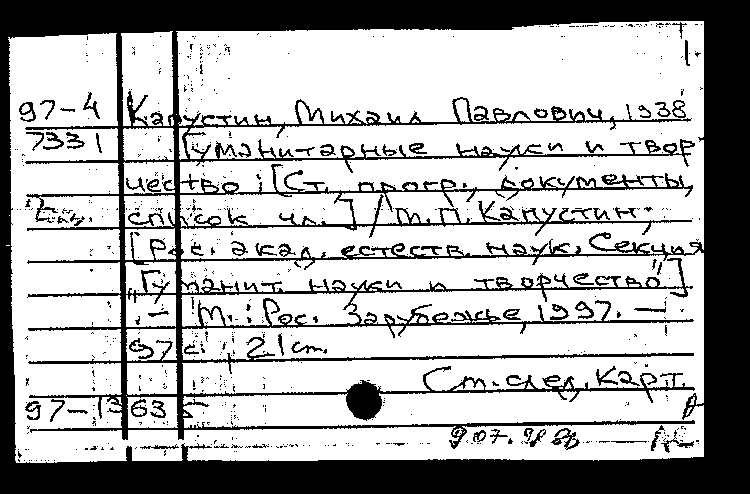 1.
97-4 Капустин, Михаил Павлович, 1938
7331 Гуманитарные науки и твор-
чество : [Ст., прогр., документы,
список чл.] / М.П. Капустин;
[Рос. акад. естеств. наук. Секция
„Гуманит. науки и творчество"]
. — М. : Рос. Зарубежье, 1997. —
97 с. ; 21 см.
Ст. след. карт.
97-13635
9.07.98